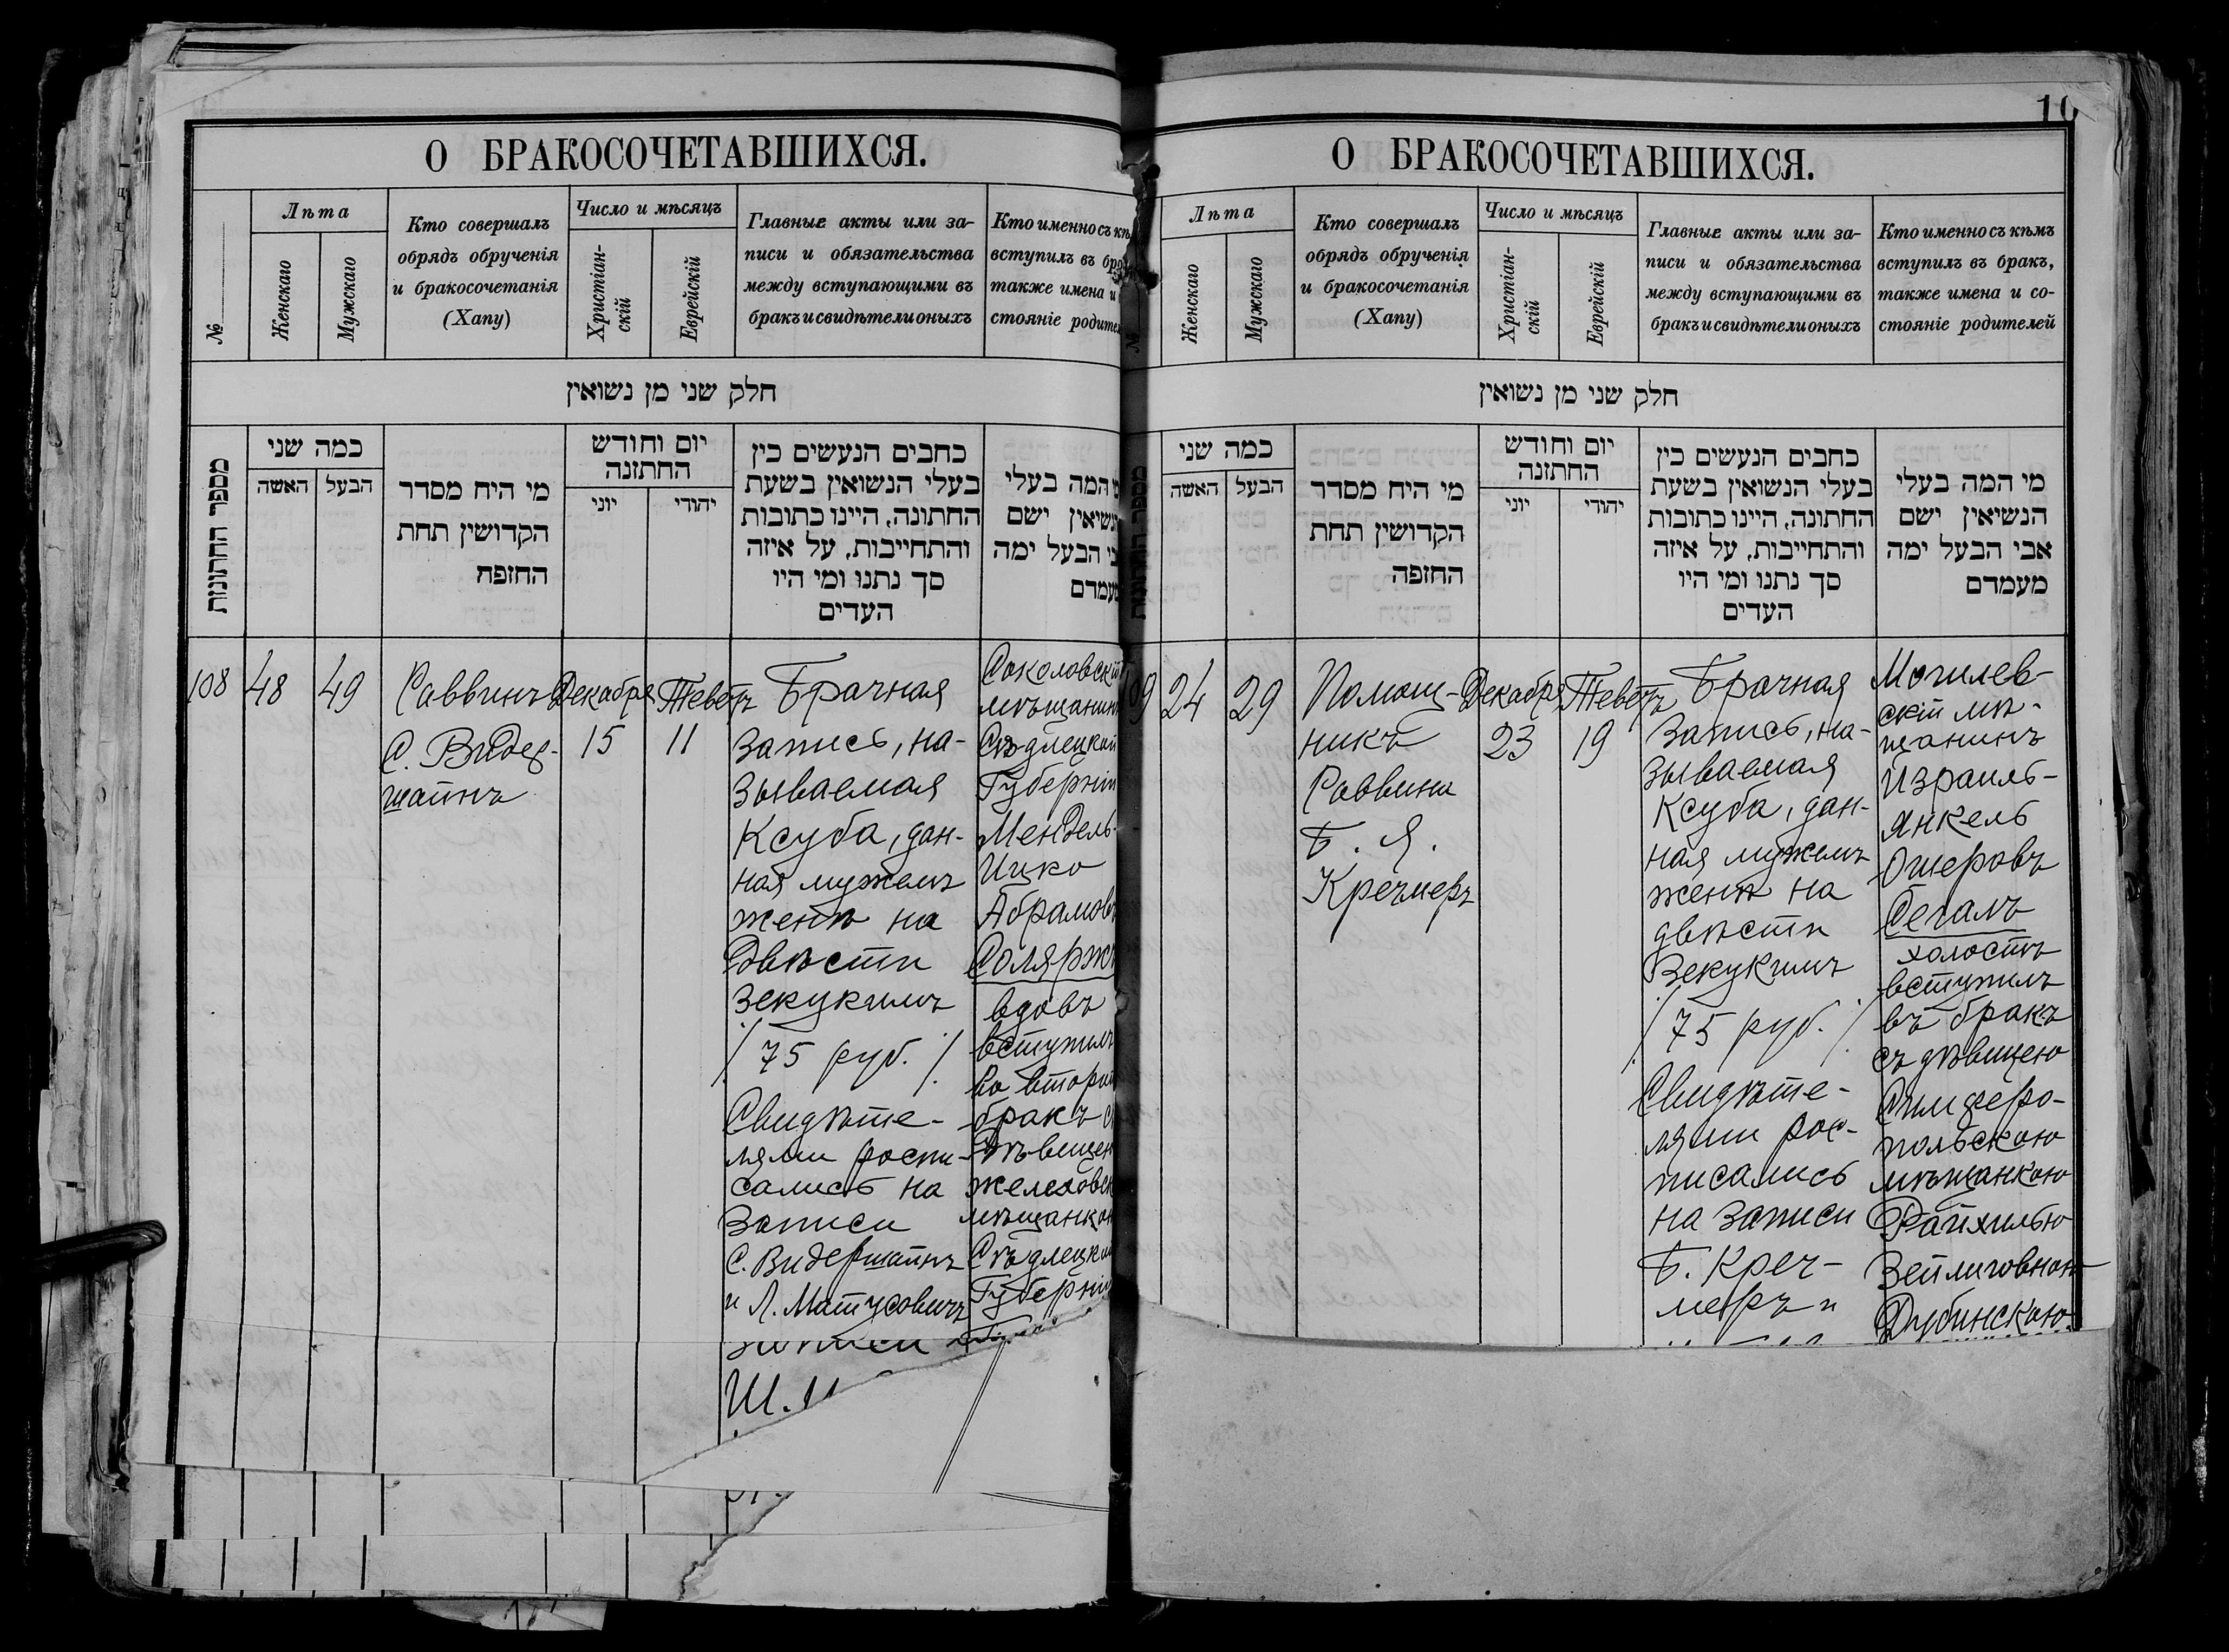 О БРАКОСОЧЕТАВШИХСЯ.
№
Лѣта
Женскаго
Мужскаго
Кто совершалъ
обрядъ обрученія
и бракосочетанія
(Хапу)
Число и мѣсяцъ
Христіан-
скій
Еврейскій
Главные акты или за-
писи и обязательства
между вступающими въ
бракъ и свидѣтели оныхъ
Кто именно съ
вступилъ въ
также имена и
стояніе
חלק שני מן נשואין
מספר החתונות
כמה שני
האשה
הבעל
מי היח מסדר
הקדושין תחת
החופח
יום וחודש
החתונה
יוני
יהודי
כחבים הנעשים כין
בעלי הנשואין בשעת
החתונה, היינו כתובות
והתחייבות, על איזה
סך נתנו ומי היו
העדים
המה בעלי
ישם
הבעל ימה
108
48
49
Раввинъ
С. Видер-
шайнъ
Декабря
15
Теветъ
11
Брачная
Запись, на-
зываемая
Ксуба, дан-
ная мужемъ
женѣ на
Двѣсти
Зекукимъ
/ 75 руб. /
Свидѣте-
лями роспи-
сались на
Записи
С. Видершайнъ
и Л. Матусовичъ
Записи
Ш.
мѣщанинъ
Сѣдлецкой
Губерніи
Мендель-
Ицко
Абрамовъ
вдовъ
вступилъ
во
бракъ
Губерніи
10
О БРАКОСОЧЕТАВШИХСЯ.
Лѣта
Женскаго
Мужскаго
Кто совершалъ
обрядъ обрученія
и бракосочетанія
(Хапу)
Число и мѣсяцъ
Христіан-
скій
Еврейскій
Главные акты или за-
писи и обязательства
между вступающими въ
бракъ и свидѣтели оныхъ
Кто именно съ кѣмъ
вступилъ въ бракъ,
также имена и со-
стояніе родителей
חלק שני מן נשואין
כמה שני
האשה
הבעל
מי היח מסדר
הקדושין תחת
החופה
יום וחודש
החתונה
יוני
יהודי
כחבים הנעשים כין
בעלי הנשואין בשעת
החתונה, היינו כתובות
והתחייבות, על איזה
סך נתנו ומי היו
העדים
מי המה בעלי
הנשיאין ישם
אבי הבעל ימה
מעמדם
24
29
Помощ-
никъ
Раввина
Б. Я.
Кречмеръ
Декабря
23
Теветъ
19
Брачная
Запись, на-
зываемая
Ксуба, дан-
ная мужемъ
женѣ на
двѣсти
Зекукимъ
/ 75 руб. /
Свидѣте-
лями рос-
писались
на Записи
Б. Креч-
меръ и
Могилев-
скій мѣ-
щанинъ
Израиль-
Янкель
Ошеровъ
Сегалъ
холостъ
вступилъ
въ бракъ
съ дѣвицею
Симферо-
польскою
мѣщанкою
Райхилью
Зейлиговною
Дубинскою